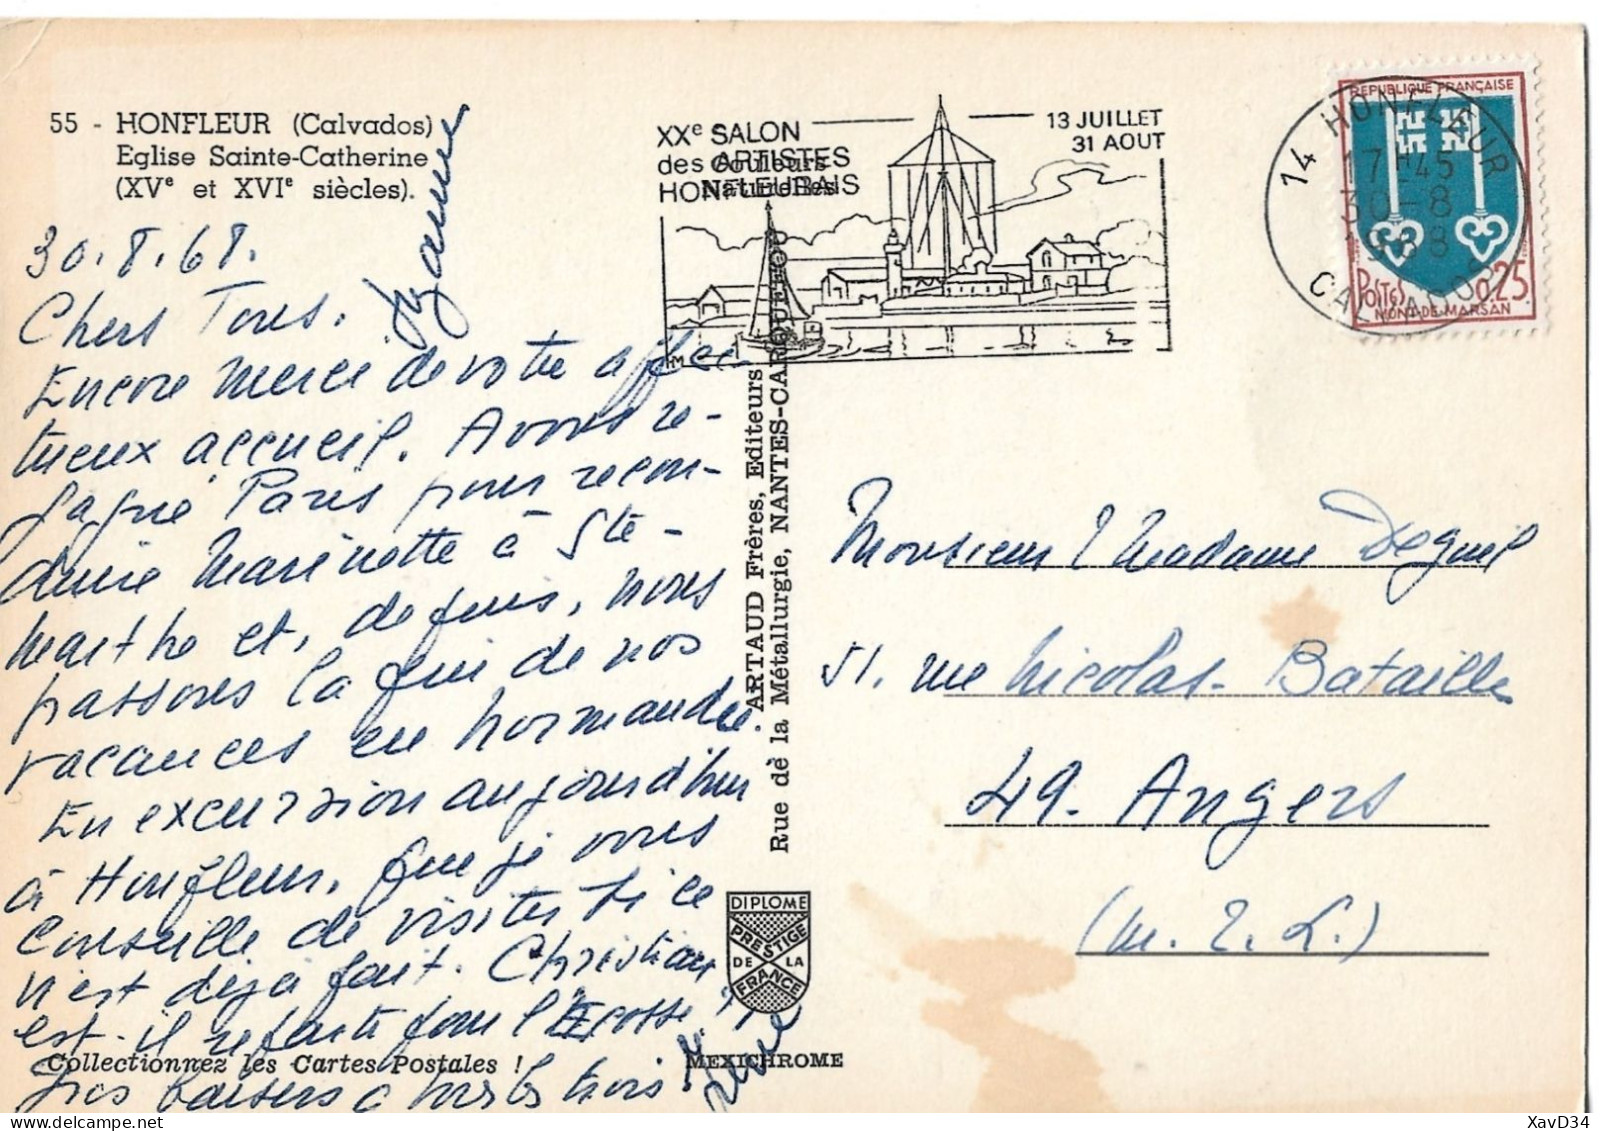 55 - HONFLEUR (Calvados)
Eglise Sainte-Catherine
(XVe et XVIe siècles).
30.8.68.
Chers Tous.
Encore merci de votre affec
tueux accueil. Avons re-
gagné Paris pour recon-
duire Marinette à Ste-
Marthe et, depuis, nous
passons la fin de nos
vacances en Normandie.
En excursion aujourd'hui
à Honfleur, que je vous
conseille de visiter si ce
n'est déjà fait. Christian
est-il reparti pour l'Ecosse ?
Gros baisers à tous les trois
Collectionnez les Cartes Postales !
MEXICHROME
ARTAUD Frères, Editeurs
Rue dè la Métallurgie, NANTES-CARQUEFOU
DIPLOME
PRESTIGE
DE LA
FRANCE
XXe SALON
des ARTISTES
HONFLEURAIS
Couleurs
Naturelles
13 JUILLET
31 AOUT
HM
14 HONFLEUR
17H45
30-8
1968
CALVADOS
REPUBLIQUE FRANÇAISE
POSTES
0,25
MONT-DE-MARSAN
Monsieur & Madame
51. rue Nicolas-Bataille
49. Angers
(M. & L.)
XavD34